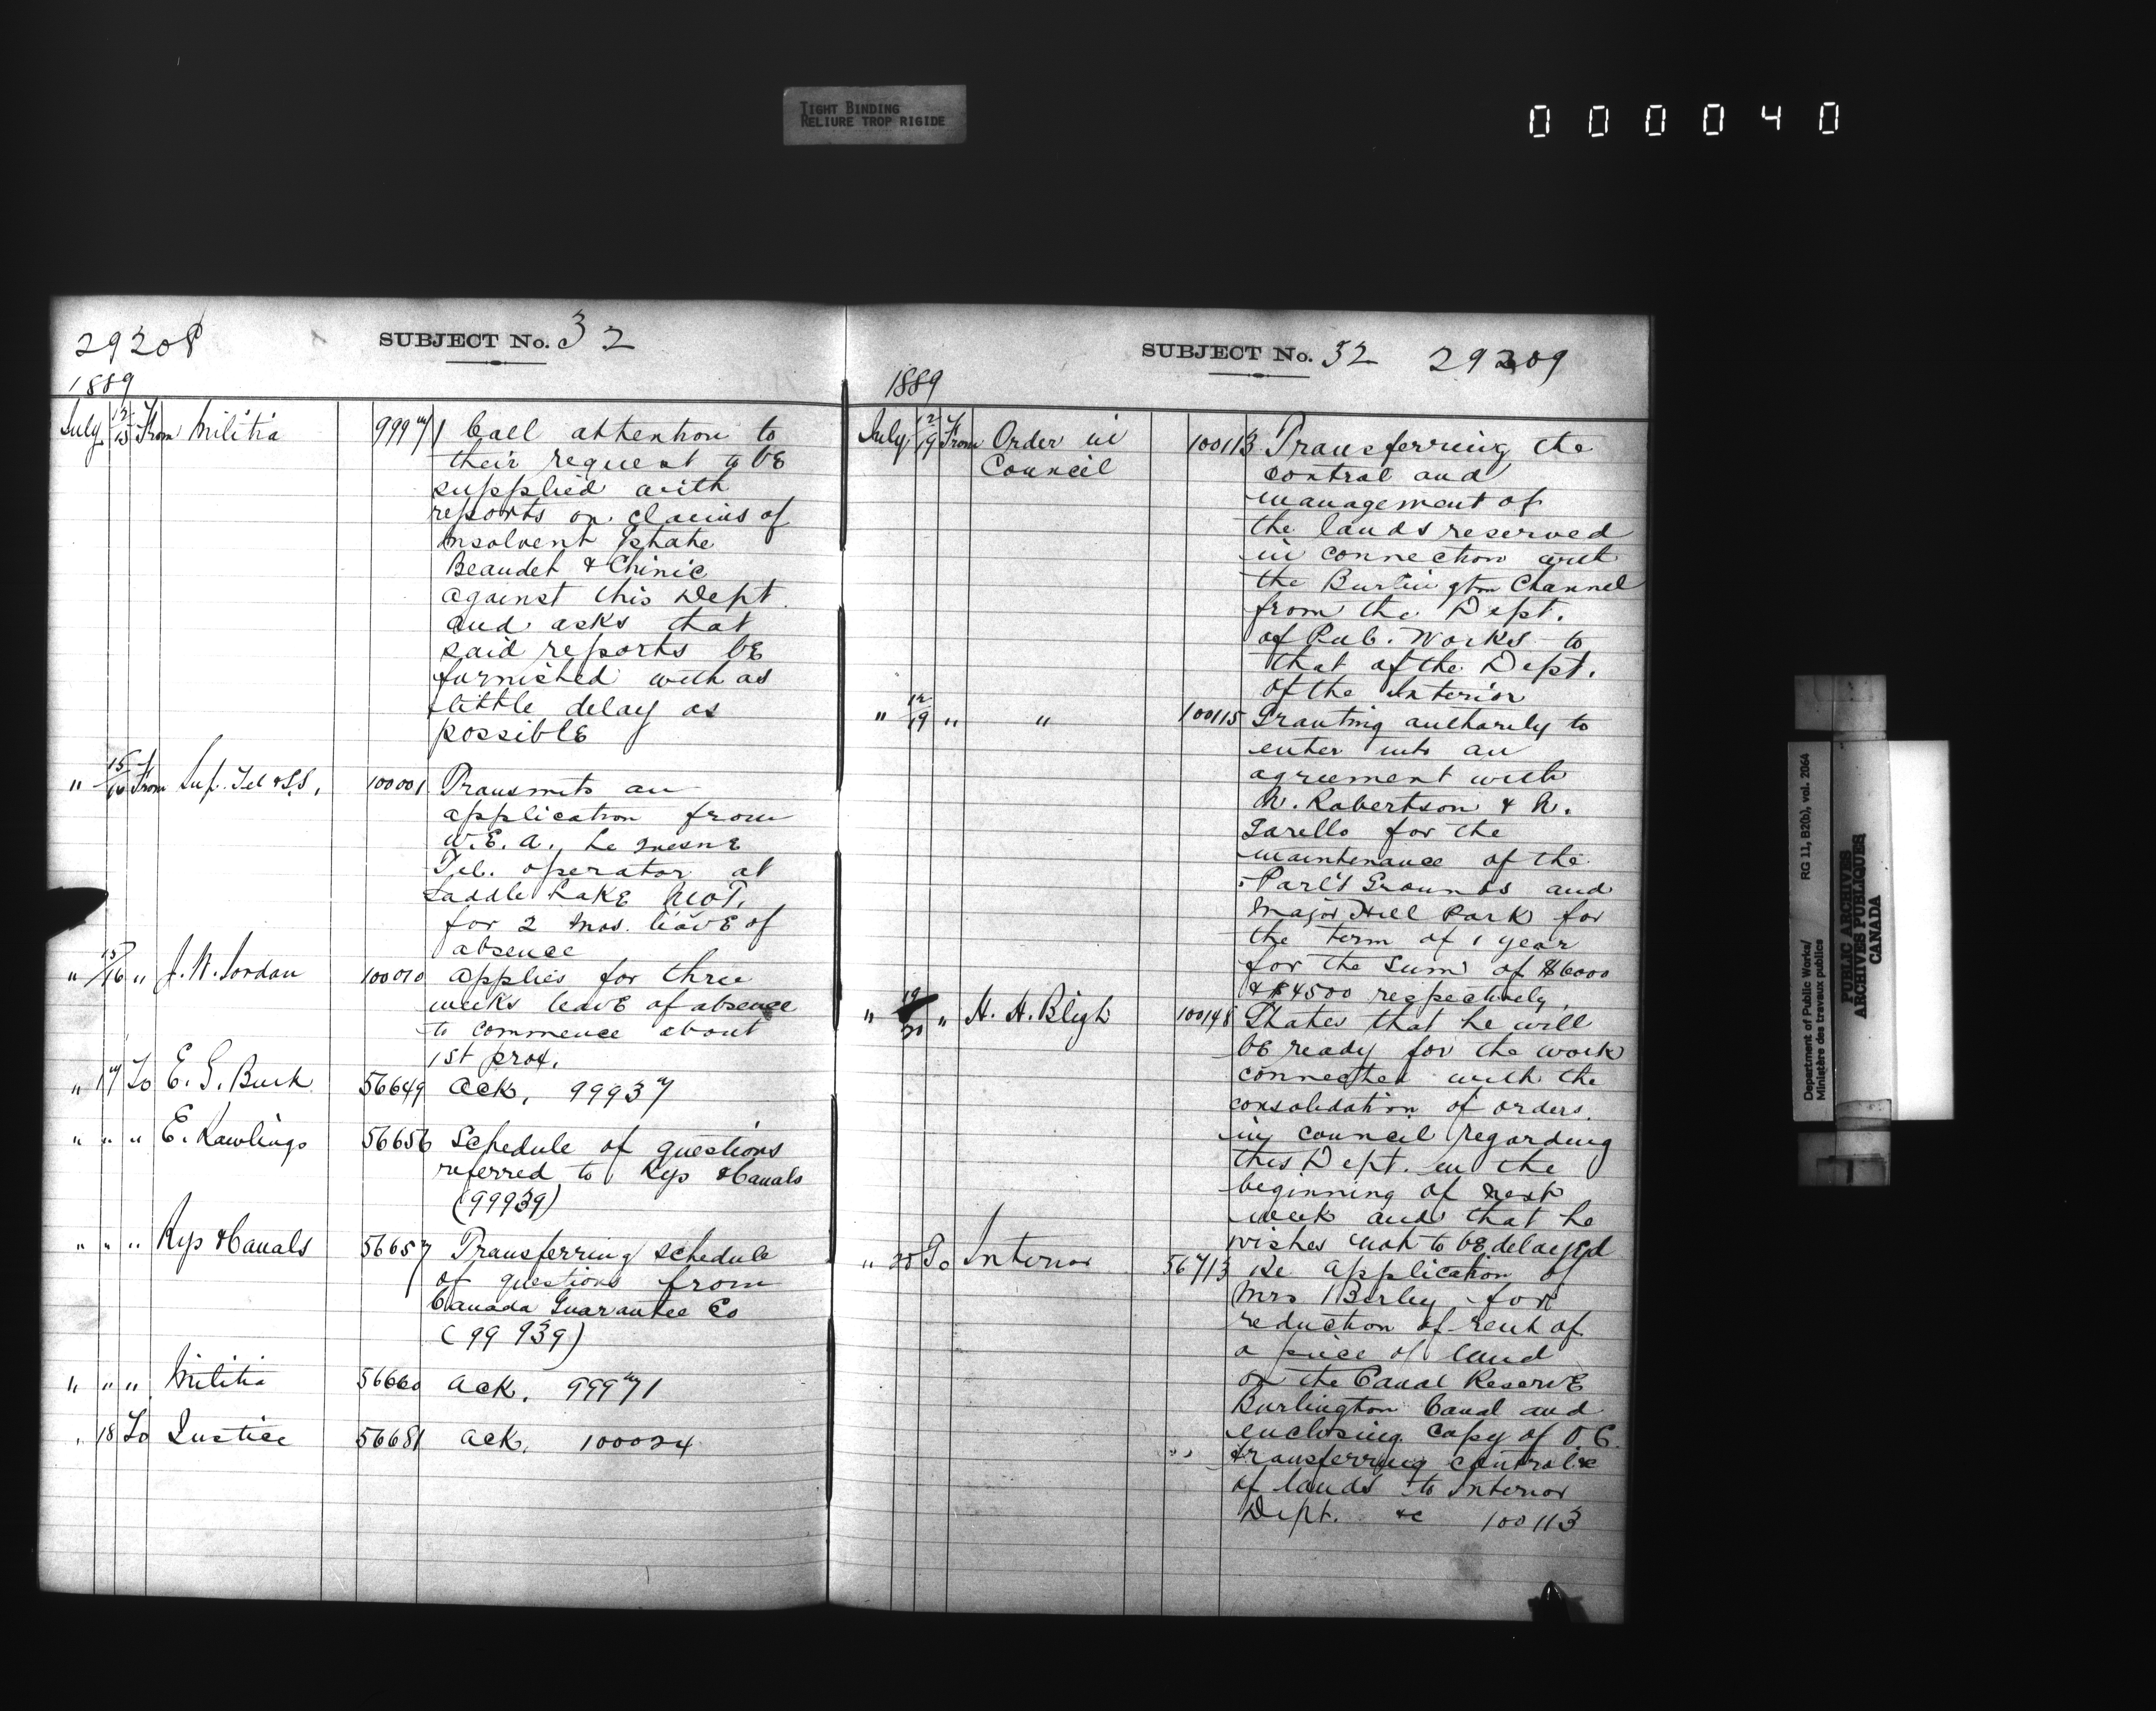 TIGHT BINDING
RELIURE TROP RIGIDE
000040
29208
SUBJECT No. 32
1889
July 12/15 From Militia 99971 Call attention to
their request to be
supplied with
reports on claims of
Insolvent Estate
Beaudet & Chinic
against this Dept.
and asks that
said reports be
furnished with as
little delay as
possible
" 15/16 From Sup. Tel & S.S. 100001 Transmits an
application from
W.E.A. Le Quesne
Tel. operator at
Saddle Lake N.W.T.
for 2 mos. leave of
absence
" 15/16 " J. W. Jordan 100010 applies for three
weeks leave of absence
to commence about
1st prox.
" 17 To E. G. Burk 56649 ack. 99937
" " " E. Rawlings 56656 Schedule of questions
referred to Rys & Canals
(99939)
" " " Rys & Canals 56657 Transferring schedule
of questions from
Canada Guarantee Co
(99939)
" " " Militia 56660 ack. 99971
" 18 To Justice 56681 ack. 100024
SUBJECT No. 32 29209
1889
July 12/19 From Order in 100113 Transferring the
Council control and
management of
the lands reserved
in connection with
the Burlington Channel
from the Dept.
of Pub. Works to
that of the Dept.
of the Interior
" 12/19 " " 100115 Granting authority to
enter into an
agreement with
Robertson & N.
Garello for the
maintenance of the
Parl's Grounds and
Major Hill Park for
the term of 1 year
for the sum of $6000
& $4500 respectively.
" 19/20 " H. H. Bligh 100148 States that he will
be ready for the work
connected with the
consolidation of orders
in council regarding
this Dept. in the
beginning of next
week and that he
wishes not to be delayed
" 25 To Interior 56713 Re application of
Mrs for
reduction of rent of
a piece of land
on the Canal Reserve
Burlington Canal and
enclosing copy of O.C.
transferring control &c
of lands to Interior
Dept. &c 100113
Department of Public Works/
Ministère des travaux publics
RG 11, B2(b), vol. 2064
PUBLIC ARCHIVES
ARCHIVES PUBLIQUES
CANADA